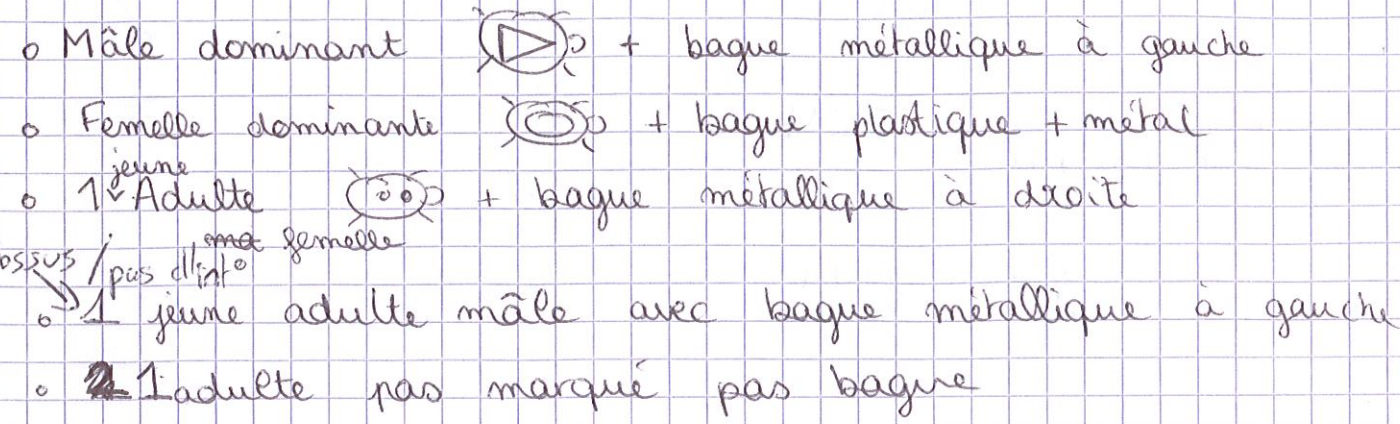 o Mâle dominant + bague métallique à gauche
o Femelle dominante + bague plastique + métal
jeune
o 1 Adulte + bague métallique à droite
femelle
ossus / pas d'inf°
o 1 jeune adulte mâle avec bague métallique à gauche
o 1 adulte pas marqué pas bague